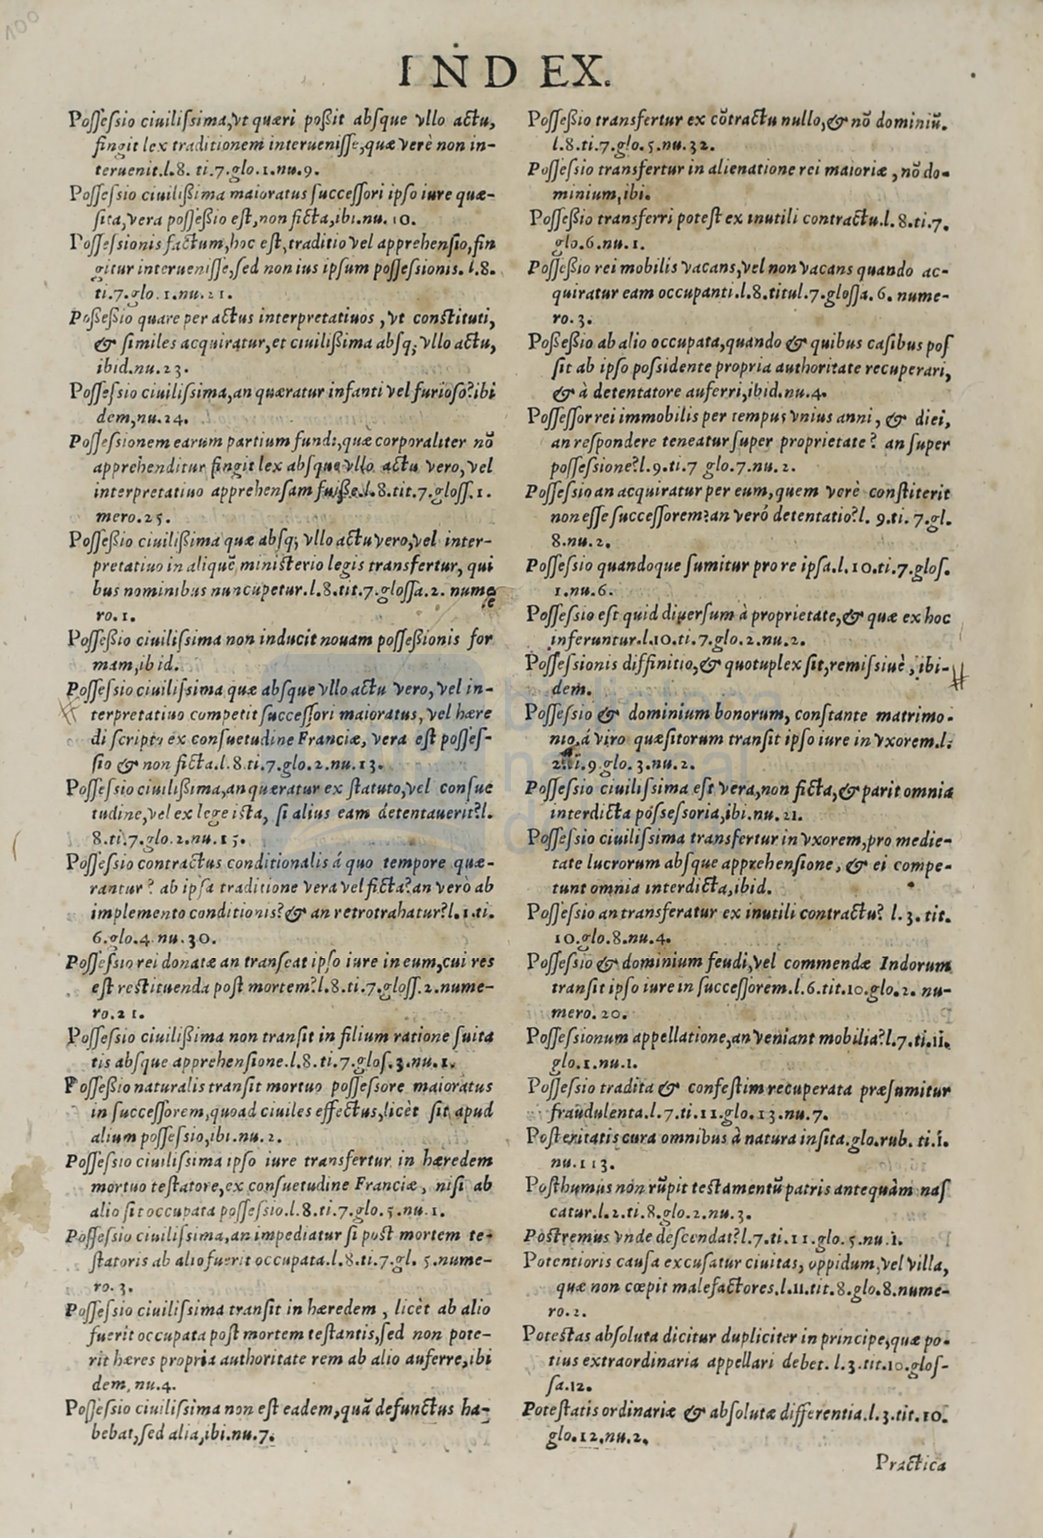 100
INDEX.
Poſſeſsio ciuiliſsima, vt quæri poßit abſque vllo actu,
fingit lex traditionem interueniſſe, quæ verè non in-
teruenit.l.8. ti.7.glo.1.nu.9.
Poſſeſsio ciuilißima maioratus ſucceſſori ipſo iure quæ-
ſita, vera poſſeßio eſt, non ficta, ibi.nu. 10.
Poſſeſsionis factum, hoc eſt, traditio vel apprehenſio, fin
gitur interueniſſe, ſed non ius ipſum poſſeſsionis. l.8.
ti.7.glo.1.nu.21.
Poßeßio quare per actus interpretatiuos, vt conſtituti,
& ſimiles acquiratur, et ciuilißima abſq; vllo actu,
ibid.nu.23.
Poſſeſsio ciuiliſsima, an quæratur infanti vel furioſo? ibi
dem, nu.24.
Poſſeſsionem earum partium fundi, quæ corporaliter nō
apprehenditur fingit lex abſque vllo actu vero, vel
interpretatiuo apprehenſam fuiße.l.8.tit.7.gloſſ.1.
mero.25.
Poſſeßio ciuilißima quæ abſq; vllo actu vero, vel inter-
pretatiuo in aliquē miniſterio legis transfertur, qui
bus nominibus nuncupetur.l.8.tit.7.gloſſa.2. nume
ro.1.
Poſſeßio ciuiliſsima non inducit nouam poſſeßionis for
mam, ibid.
Poſſeſsio ciuiliſsima quæ abſque vllo actu vero, vel in-
terpretatiuo competit ſucceſſori maioratus, vel hære
di ſcripto ex conſuetudine Franciæ, vera eſt poſſeſ-
ſio & non ficta.l.8.ti.7.glo.2.nu.13.
Poſſeſsio ciuilißima, an quæratur ex ſtatuto, vel conſue
tudine, vel ex lege iſta, ſi alius eam detentauerit?l.
8.ti.7.glo.2.nu.15.
Poſſeſsio contractus conditionalis á quo tempore quæ-
rantur? ab ipſa traditione vera vel ficta? an verò ab
implemento conditionis? & an retrotrahatur?l.1.ti.
6.glo.4.nu.30.
Poſſeſsio rei donatæ an tranſeat ipſo iure in eum, cui res
eſt reſtituenda poſt mortem?l.8.ti.7.gloſſ.2.nume-
ro.21.
Poſſeſsio ciuilißima non tranſit in filium ratione ſuita
tis abſque apprehenſione.l.8.ti.7.gloſ.3.nu.1.
Poſſeßio naturalis tranſit mortuo poſſeſsore maioratus
in ſucceſſorem, quoad ciuiles effectus, licèt ſit apud
alium poſſeſsio, ibi.nu.2.
Poſſeſsio ciuiliſsima ipſo iure transfertur in hæredem
mortuo teſtatore, ex conſuetudine Franciæ, niſi ab
alio ſit occupata poſſeſsio.l.8.ti.7.glo.5.nu.1.
Poſſeſsio ciuiliſsima, an impediatur ſi poſt mortem te-
ſtatoris ab alio fuerit occupata.l.8.ti.7.gl. 5.nume-
ro.3.
Poſſeſsio ciuiliſsima tranſit in hæredem, licèt ab alio
fuerit occupata poſt mortem teſtantis, ſed non pote-
rit hæres propria authoritate rem ab alio auferre, ibi
dem, nu.4.
Poſſeſsio ciuiliſsima non eſt eadem, quā defunctus ha-
bebat, ſed alia, ibi.nu.7.
Poſſeßio transfertur ex cōtractu nullo, & nō dominiū.
l.8.ti.7.glo.5.nu.32.
Poſſeſsio transfertur in alienatione rei maioriæ, nō do-
minium, ibi.
Poſſeßio transferri poteſt ex inutili contractu.l.8.ti.7.
glo.6.nu.1.
Poſſeßio rei mobilis vacans, vel non vacans quando ac-
quiratur eam occupanti.l.8.titul.7.gloſſa.6. nume-
ro.3.
Poßeßio ab alio occupata, quando & quibus caſibus poſ
ſit ab ipſo poſsidente propria authoritate recuperari,
& à detentatore auferri, ibid.nu.4.
Poſſeſſor rei immobilis per tempus vnius anni, & diei,
an reſpondere teneatur ſuper proprietate? an ſuper
poſſeſsione?l.9.ti.7 glo.7.nu.2.
Poſſeſsio an acquiratur per eum, quem verè conſtiterit
non eſſe ſucceſſorem? an veró detentatio?l. 9.ti.7.gl.
8.nu.2.
Poſſeſsio quandoque ſumitur pro re ipſa.l.10.ti.7.gloſ.
1.nu.6.
Poſſeſsio eſt quid diuerſum à proprietate, & quæ ex hoc
inferuntur.l.10.ti.7.glo.2.nu.2.
Poſſeſsionis diffinitio, & quotuplex ſit, remiſsiuè, ibi-
dem.
Poſſeſsio & dominium bonorum, conſtante matrimo-
nio, á viro quæſitorum tranſit ipſo iure in vxorem.l.
2.ti.9.glo.3.nu.2.
Poſſeſsio ciuiliſsima eſt vera, non ficta, & parit omnia
interdicta poſseſsoria, ibi.nu.21.
Poſſeſsio ciuiliſsima transfertur in vxorem, pro medie-
tate lucrorum abſque apprehenſione, & ei compe-
tunt omnia interdicta, ibid.
Poſſeſsio an transferatur ex inutili contractu? l.3.tit.
10.glo.8.nu.4.
Poſſeſsio & dominium feudi, vel commendæ Indorum
tranſit ipſo iure in ſucceſſorem.l.6.tit.10.glo.2. nu-
mero.20.
Poſſeſsionum appellatione, an veniant mobilia?l.7.ti.11.
glo.1.nu.1.
Poſſeſsio tradita & confeſtim recuperata præſumitur
fraudulenta.l.7.ti.11.glo.13.nu.7.
Poſteritatis cura omnibus à natura inſita.glo.rub. ti.1.
nu.113.
Poſthumus non rūpit teſtamentū patris antequàm naſ
catur.l.2.ti.8.glo.2.nu.3.
Poſtremus vnde deſcendat?l.7.ti.11.glo.5.nu.1.
Potentioris cauſa excuſatur ciuitas, oppidum, vel villa,
quæ non cœpit malefactores.l.11.tit.8.glo.8.nume-
ro.2.
Poteſtas abſoluta dicitur dupliciter in principe, quæ po-
tius extraordinaria appellari debet. l.3.tit.10.gloſ-
ſa.12.
Poteſtatis ordinariæ & abſolutæ differentia.l.3.tit.10.
glo.12.nu.2.
Practica